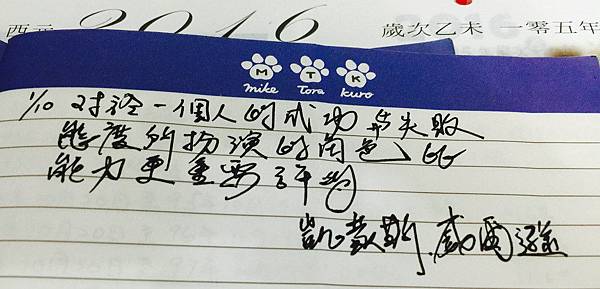 西元 2016 歲次乙未 一零五年
M T K
mike Tora kuro
1/10 對於一個人的成功與失敗
態度所扮演的角色比
能力更重要
凱蒙斯.威爾遜